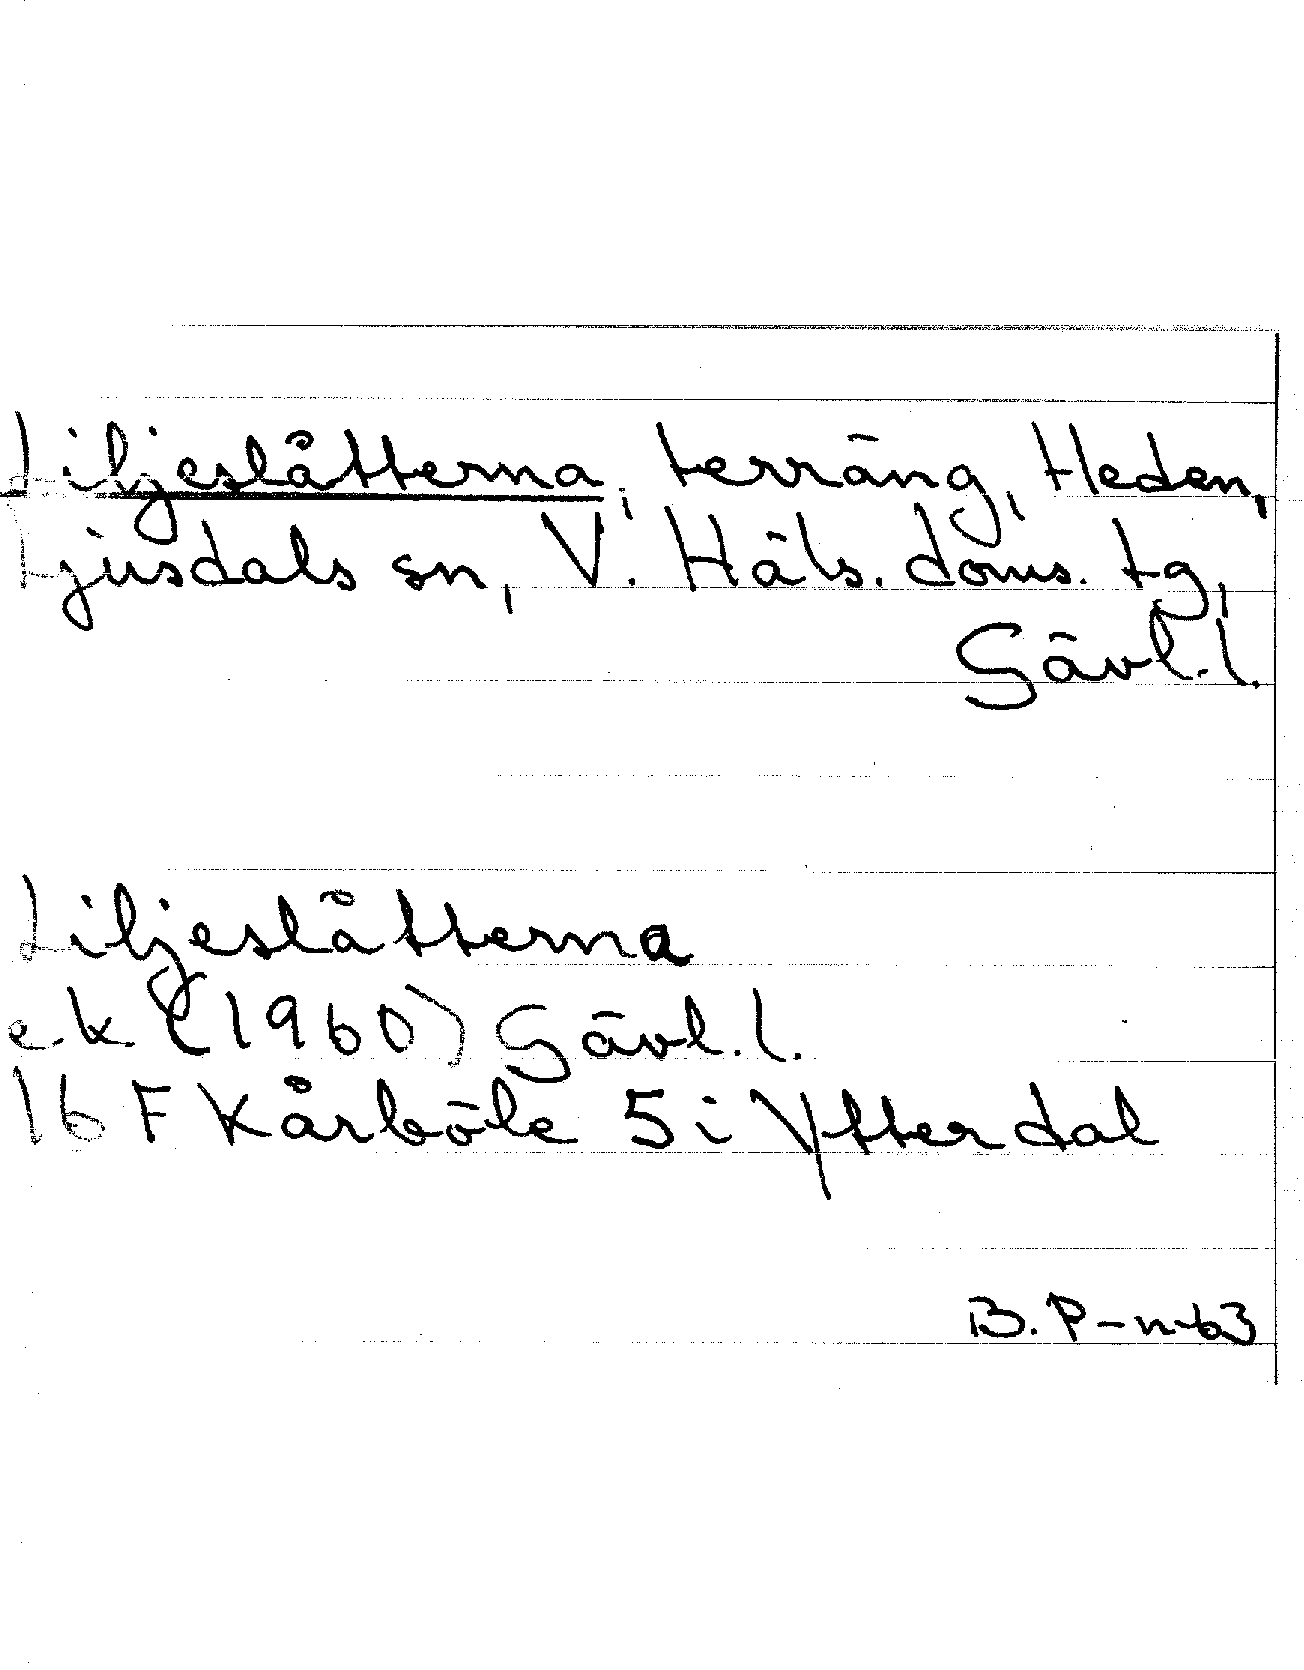 Liljeslåtterna, terräng, Heden,
Ljusdals sn, V. Häls. doms. tg,
Gävl. l.
Liljeslåtterna
ek (1960) Gävl. l.
16 F Kårböle 5 i Ytterdal
B. P-n-63